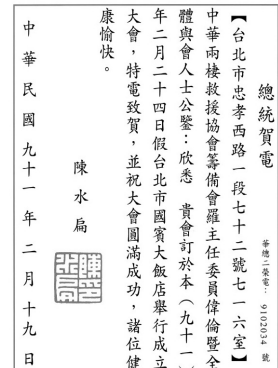 總統賀電
華總二榮電：9102034 號
【台北市忠孝西路一段七十二號七一六室】
中華兩棲救援協會籌備會羅主任委員偉倫暨全
體與會人士公鑒：欣悉　貴會訂於本（九十一）
年二月二十四日假台北市國賓大飯店舉行成立
大會，特電致賀，並祝大會圓滿成功，諸位健
康愉快。
陳水扁
中華民國九十一年二月十九日